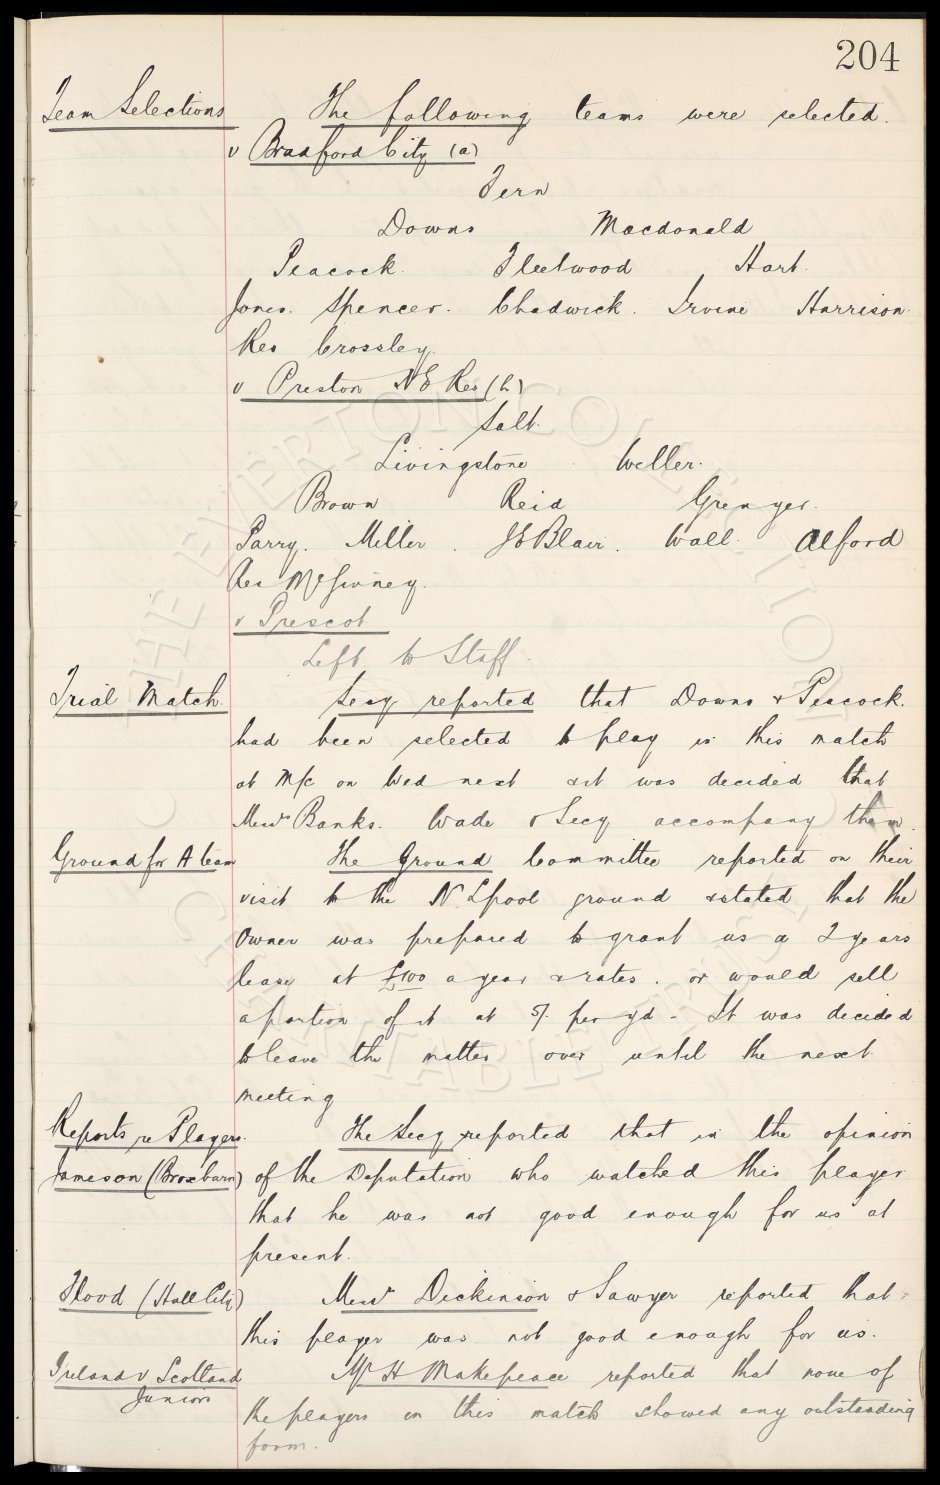 204
Team Selections The following teams were selected.
v Bradford City (a)
Fern
Downs Macdonald
Peacock. Fleetwood Hart.
Jones. Spencer. Chadwick. Irvine Harrison.
Res Crossley.
v Preston N E Res (h)
Salt.
Livingstone Weller.
Brown Reid Grenyer.
Parry. Miller. J E Blair. Wall. Alford
Res McGivney.
v Prescot
Left to Staff.
Trial Match. Secy reported that Downs & Peacock.
had been selected to play in this match
at M/c on Wed next & it was decided that
Messrs Banks. Wade & Secy accompany them.
Ground for A team The Ground Committee reported on their
visit to the N. Lpool ground & stated that the
Owner was prepared to grant us a 2 years
lease at £100 a year & rates. or would sell
a portion of it at 5/- per yd - It was decided
to leave the matter over until the next
meeting
Reports re Players. The Secy reported that in the opinion
Jameson (Broxburn) of the Deputation who watched this player
that he was not good enough for us at
present.
Flood (Hull City) Messrs Dickinson & Sawyer reported that
this player was not good enough for us.
Ireland v Scotland Mr H Makepeace reported that none of
Juniors
the players in this match showed any outstanding
form.
THE EVERTON COLLECTION
CHARITABLE TRUST